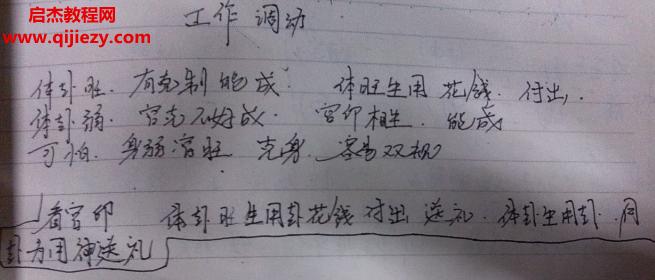 启杰教程网
www.qijiezy.com
工作调动
体卦旺. 有克制能成. 体旺生用 花钱. 付出.
体卦弱. 官克不好成. 官印相生. 能成
可怕. 身弱官旺 克身. 容易双规
看官印 体卦旺生用卦花钱付出 送礼. 体卦生用卦. 同
卦为用神送礼